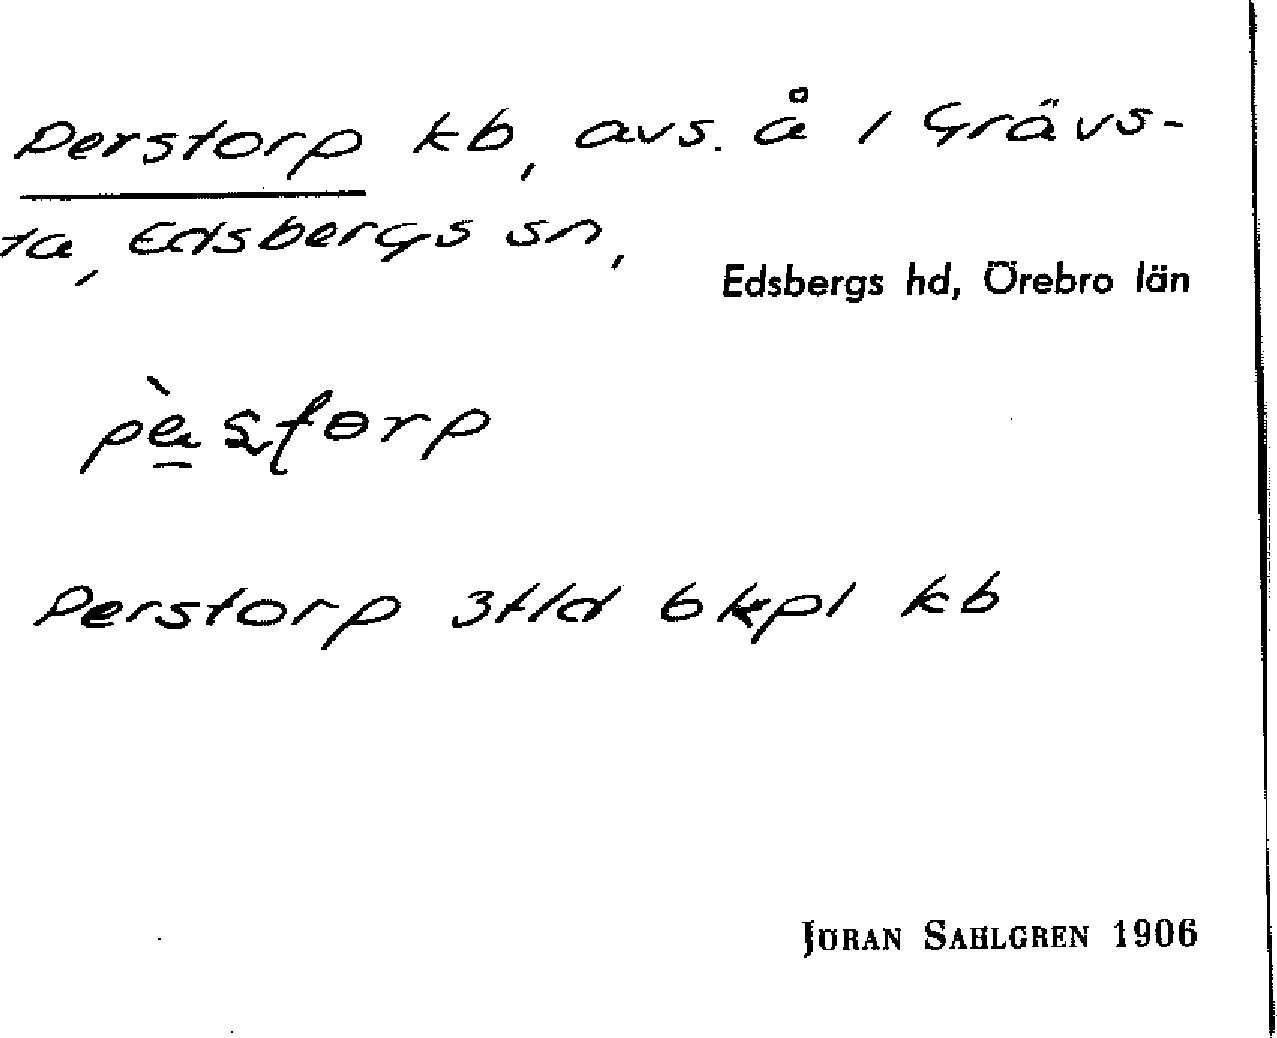 Perstorp kb, avs. å / Grävs-
ta, Edsbergs sn,
Edsbergs hd, Örebro län
Perstorp 3tld 6 kpl kb
JÖRAN SAHLGREN 1906